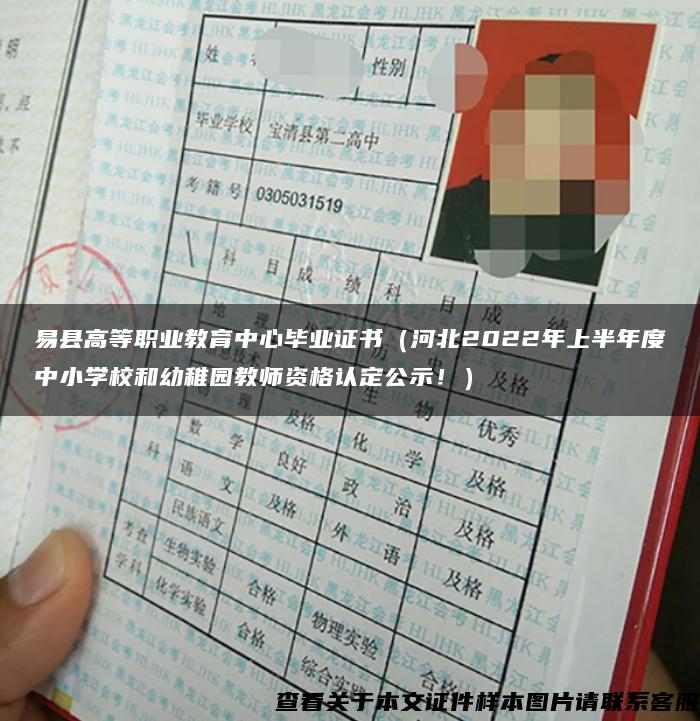 姓
性别
毕业学校 宝清县第二高中
考籍号 0305031519
科目 成绩 科目 成绩
地理
易县高等职业教育中心毕业证书（河北2022年上半年度
中小学校和幼稚园教师资格认定公示！）
信息技术 历史 及格
物理 及格 生物 优秀
数学 良好 化学 及格
语文 及格 政治 及格
民族语文 外语 及格
考查 生物实验 合格 物理实验 合格
学科 化学实验 合格 综合实
查看关于本文证件样本图片请联系客服